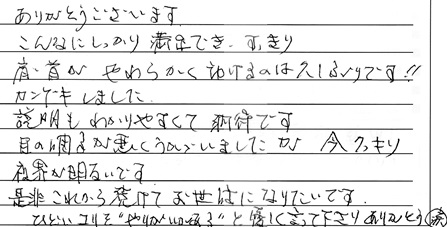 ありがとうございます
こんなにしっかり満足でき すっきり
肩・首が やわらかく 動けるのは久しぶりです!!
カンゲキしました
説明も わかりやすくて
目の調子が悪くうかがいましたが 今 クッキリ
視界が明るいです
是非 これから続けて お世話になりたいです.
ひどいコリを"やりがいがある"と優しく言って下さり ありがとう